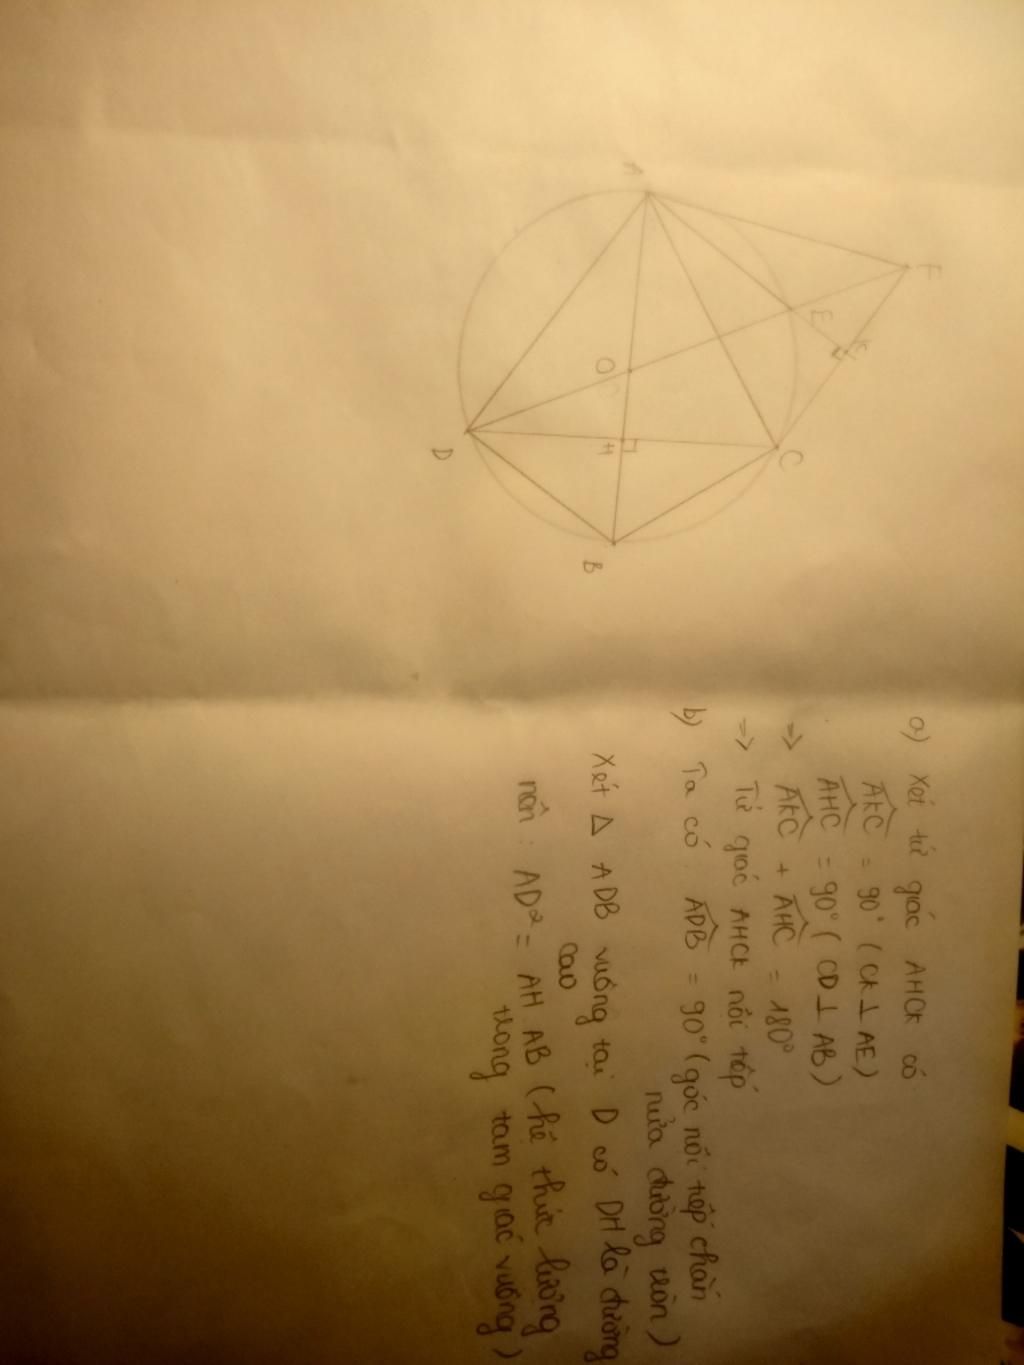 A
F
E
K
O
C
H
D
B
a) Xét tứ giác AHCK có
AKC = 90° (CK ⊥ AE)
AHC = 90° (CD ⊥ AB)
=> AKC + AHC = 180°
=> Tứ giác AHCK nội tiếp
b) Ta có: ADB = 90° (góc nối tiếp chắn
nửa đường tròn)
Xét Δ ADB vuông tại D có DH là đường
cao
nên: AD² = AH.AB (hệ thức lượng
trong tam giác vuông)